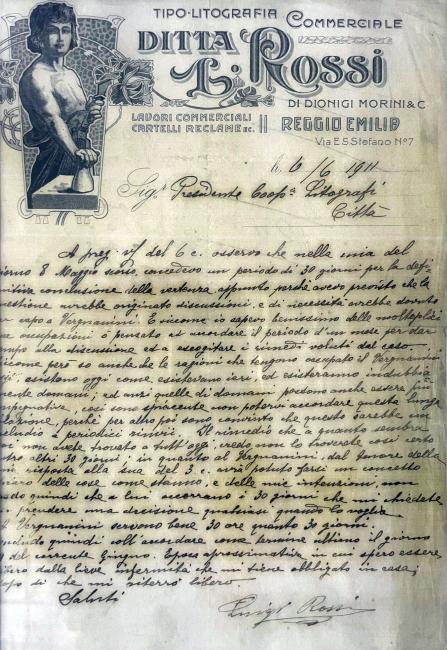 TIPO-LITOGRAFIA COMMERCIALE
DITTA
L. ROSSI
DI DIONIGI MORINI & C
LAVORI COMMERCIALI
CARTELLI RECLAME ec.
REGGIO EMILIA
Via E.S. Stefano N° 7
6/6 1911
Sigr Presidente Coopa Litografi
Città
A preg. v/ del 6 c. osservo che nella mia del
giorno 8 Maggio scorso, concedevo un periodo di 30 giorni per la defi-
nitiva conclusione della vertenza, appunto perchè avevo previsto che la
questione avrebbe originato discussioni, e di necessità avrebbe dovuto
capo a Vergnanini. E siccome io sapevo benissimo delle molteplici
occupazioni ò pensato ad accordare il periodo d'un mese per dar
campo alla discussione ed a escogitare i rimedi voluti del caso.
Siccome però so anche che le ragioni che tengono occupato il Vergnanini
oggi, esistono oggi come esistevano ieri, ed esisteranno indubbia-
mente domani; ed anzi quelle di domani possono anche essere più
impegnative, così sono spiacente non potervi accordare questa lunga
dilazione, perchè per altro poi sono convinto che questo sarebbe un
periodici rinvii. Il rimedio che a quanto sembra
non avete trovato a tutt'oggi, credo non lo troverete così certo
altri 30 giorni; in quanto al Vergnanini, dal tenore della
mia risposta alla sua del 3 c. avrà potuto farsi un concetto
delle cose come stanno, e delle mie intenzioni, non
credo quindi che a lui occorrano i 30 giorni che mi chiedete
per prendere una decisione qualsiasi quando lo voglia.
Vergnanini servono bene 30 ore quanto 30 giorni.
quindi accordare come termine ultimo il giorno
del corrente Giugno. Epoca aprossimativa in cui spero essere
dalla lieve infermità che mi tiene obbligato in casa;
dopo di che mi riterrò libero.
Saluti
Luigi Rossi